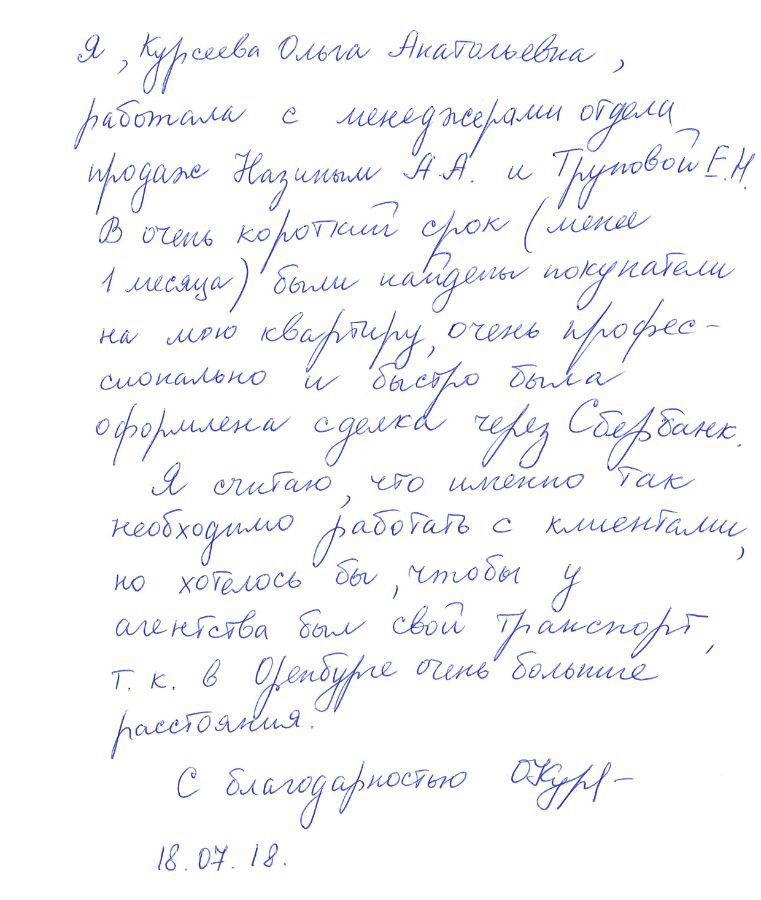 Я, Курсеева Ольга Анатольевна,
работала с менеджерами отдела
продаж Назиным А.А. и Труповой Е.Н.
В очень короткий срок (менее
1 месяца) были найдены покупатели
на мою квартиру, очень профес-
сионально и быстро была
оформлена сделка через Сбербанк.
Я считаю, что именно так
необходимо работать с клиентами,
но хотелось бы, чтобы у
агентства был свой транспорт,
т.к. в Оренбурге очень большие
расстояния.
С благодарностью
18.07.18.